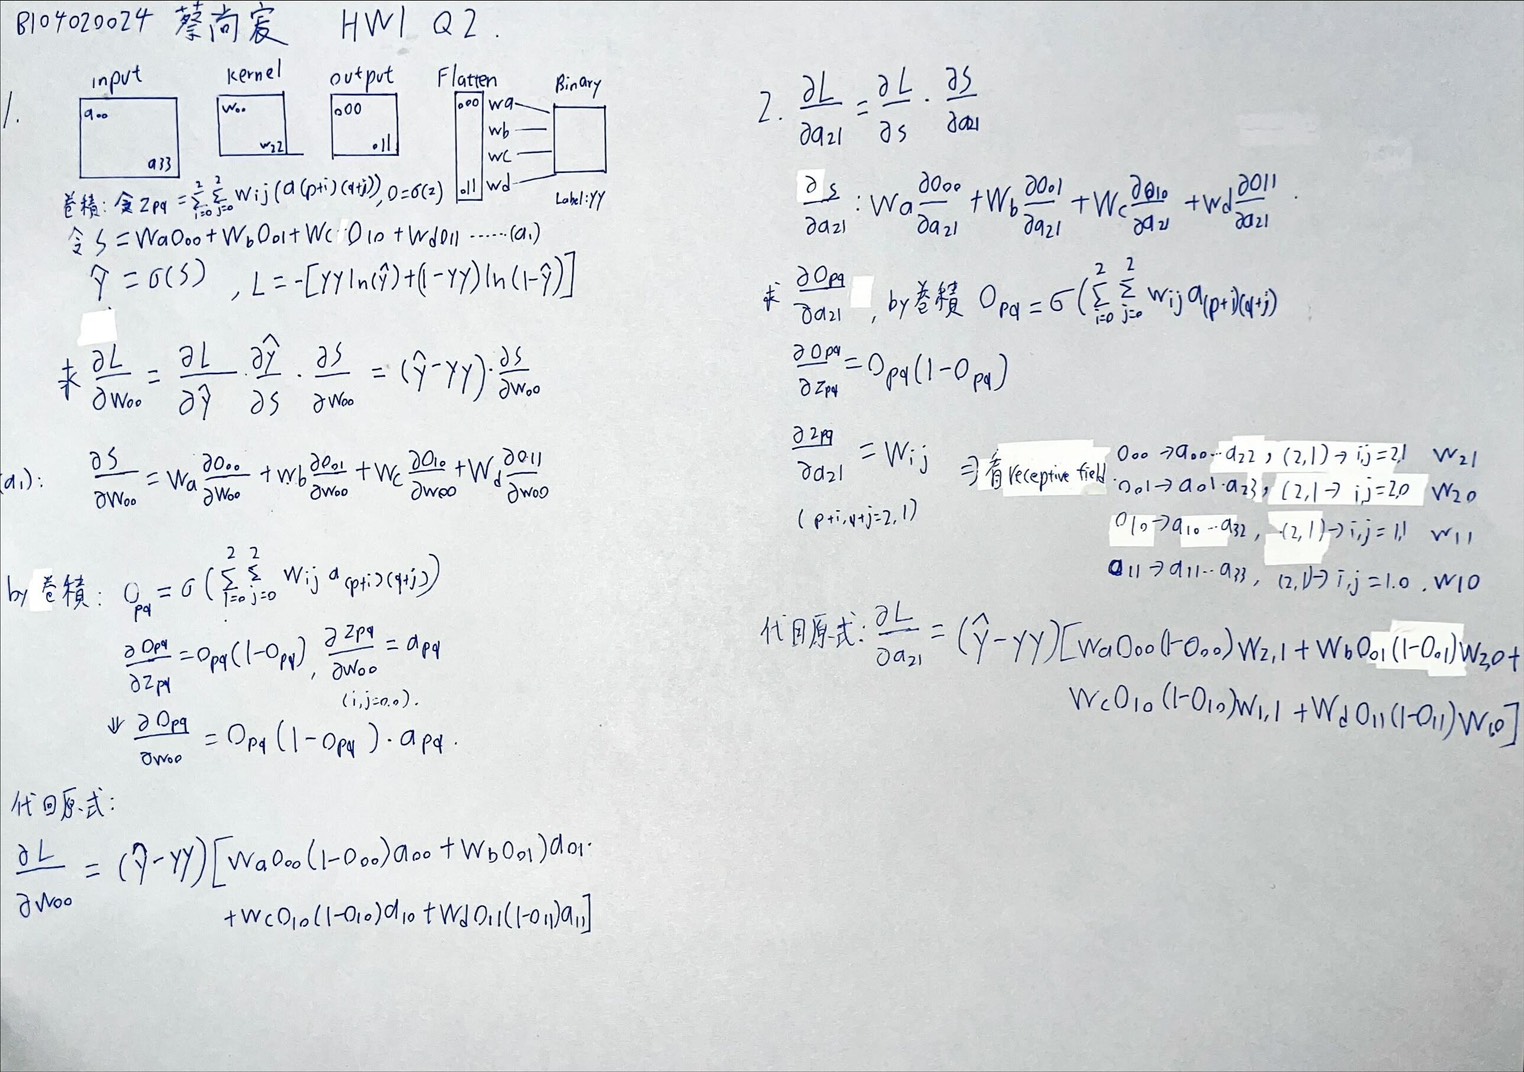 B104020024 蔡尚宸 HW1 Q2.
1.
input kernel output Flatten Binary
a₀₀ w₀₀ o00 o00 wa
wb
wc
a33 w₂₂ .11 .11 wd
Label:YY
卷積: 令 Zpq = Σ(i=0→2) Σ(j=0→2) Wij (a(p+i)(q+j)), O=σ(z)
令 S = WaO₀₀ + WbO₀₁ + Wc O₁₀ + WdO11 ......(a₁)
Ŷ = σ(S) , L = -[YY ln(Ŷ)+(1-YY) ln(1-Ŷ)]
求 ∂L/∂W₀₀ = ∂L/∂Ŷ · ∂Ŷ/∂S · ∂S/∂W₀₀ = (Ŷ-YY)·∂S/∂W₀₀
(a₁): ∂S/∂W₀₀ = Wa ∂O₀₀/∂W₀₀ + Wb ∂O₀₁/∂W₀₀ + Wc ∂O₁₀/∂W₀₀ + Wd ∂O11/∂W₀₀
by 卷積: Opq = σ(Σ(i=0→2) Σ(j=0→2) Wij a(p+i)(q+j))
∂Opq/∂Zpq = Opq(1-Opq), ∂Zpq/∂W₀₀ = apq
(i,j=0.0).
⇓ ∂Opq/∂W₀₀ = Opq(1-Opq)·apq.
代回原式:
∂L/∂W₀₀ = (Ŷ-YY)[WaO₀₀(1-O₀₀)a₀₀ + WbO₀₁)a₀₁.
+WcO₁₀(1-O₁₀)a₁₀ + WdO₁₁(1-O₁₁)a₁₁]
2. ∂L/∂a₂₁ = ∂L/∂s · ∂S/∂a₂₁
∂s/∂a₂₁ : Wa ∂O₀₀/∂a₂₁ + Wb ∂O₀₁/∂a₂₁ + Wc ∂O₁₀/∂a₂₁ + Wd ∂O11/∂a₂₁ .
求 ∂Opq/∂a₂₁ , by 卷積 Opq = σ(Σ(i=0→2) Σ(j=0→2) Wij a(p+i)(q+j)
∂Opq/∂Zpq = Opq(1-Opq)
∂Zpq/∂a₂₁ = Wij ⇒ 看 receptive field
(p+i,q+j=2,1)
O₀₀ → a₀₀...a₂₂ , (2,1) → i,j=2,1 W₂₁
O₀₁ → a₀₁.a₂₃, (2,1 → i,j=2,0 W₂₀
O₁₀ → a₁₀...a₃₂, (2,1) → i,j=1,1 W₁₁
a₁₁ → a₁₁...a₃₃, (2,1) → i,j=1.0 . W₁₀
代回原式: ∂L/∂a₂₁ = (Ŷ-YY)[WaO₀₀(1-O₀₀)W₂,₁ + WbO₀₁(1-O₀₁)W₂,₀ +
WcO₁₀(1-O₁₀)W₁,₁ + WdO₁₁(1-O₁₁)W₁,₀]